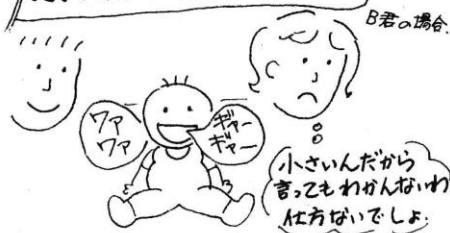 B君の場合.
ワァ
ワァ
ギャー
ギャー
小さいんだから
言ってもわかんないわ
仕方ないでしょ.